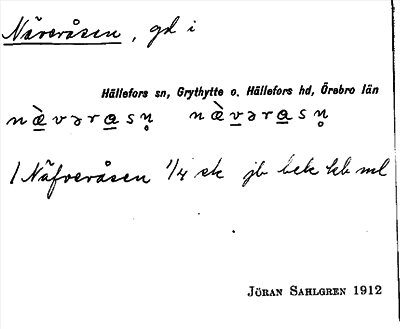 Näveråsen, gd i
Hällefors sn, Grythytte o. Hällefors hd, Örebro län
næ̀vərasn̥ næ̀vərasn̥
1 Näfveråsen 1/4 sk jb bek kb ml
JÖRAN SAHLGREN 1912